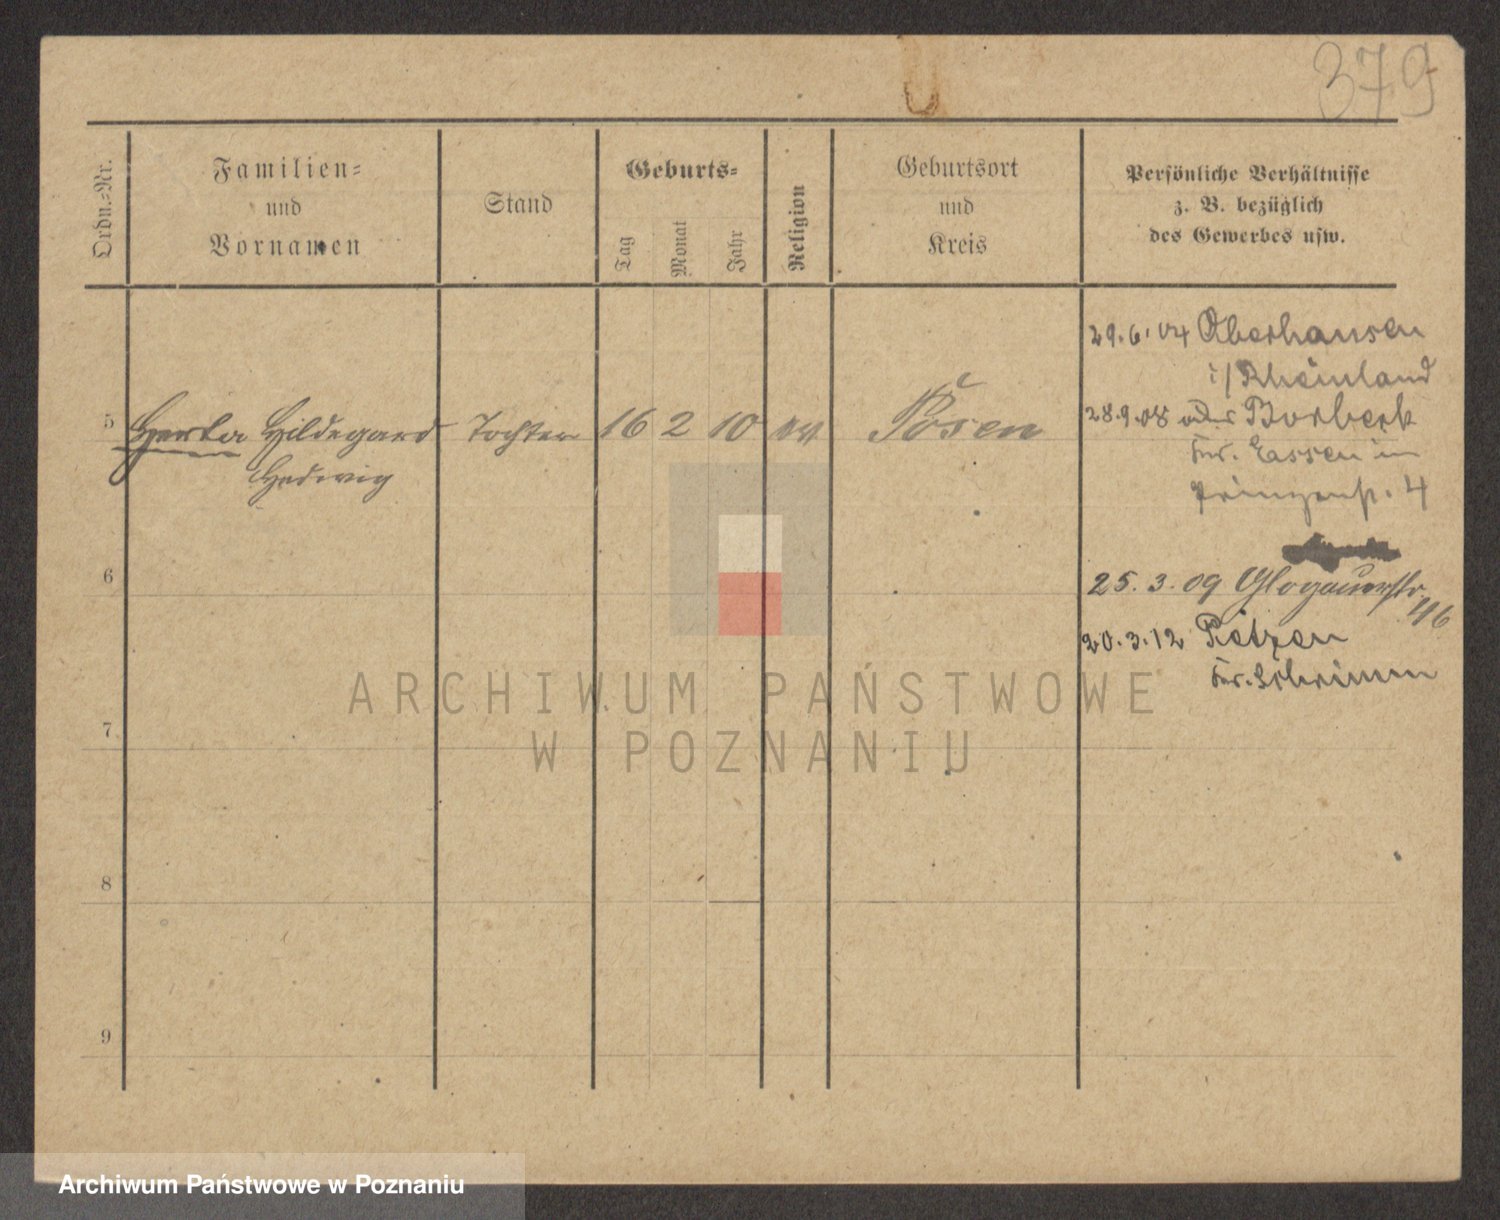 379
Ordn.-Nr.
Familien-
und
Vornamen
Stand
Geburts-
Tag
Monat
Jahr
Religion
Geburtsort
und
Kreis
Persönliche Verhältnisse
z. B. bezüglich
des Gewerbes usw.
5 Herta Hildegard Tochter 16 2 10 ev Posen
Hedwig
29.6.04 Oberhausen
i/Rheinland
28.9.08 Borbeck
Kr. Essen
Prinzenstr. 4
6
25.3.09 Glogauerstr
46
20.3.12 Pietzen
Kr. Schrimm
7
8
9
ARCHIWUM PAŃSTWOWE
W POZNANIU
Archiwum Państwowe w Poznaniu